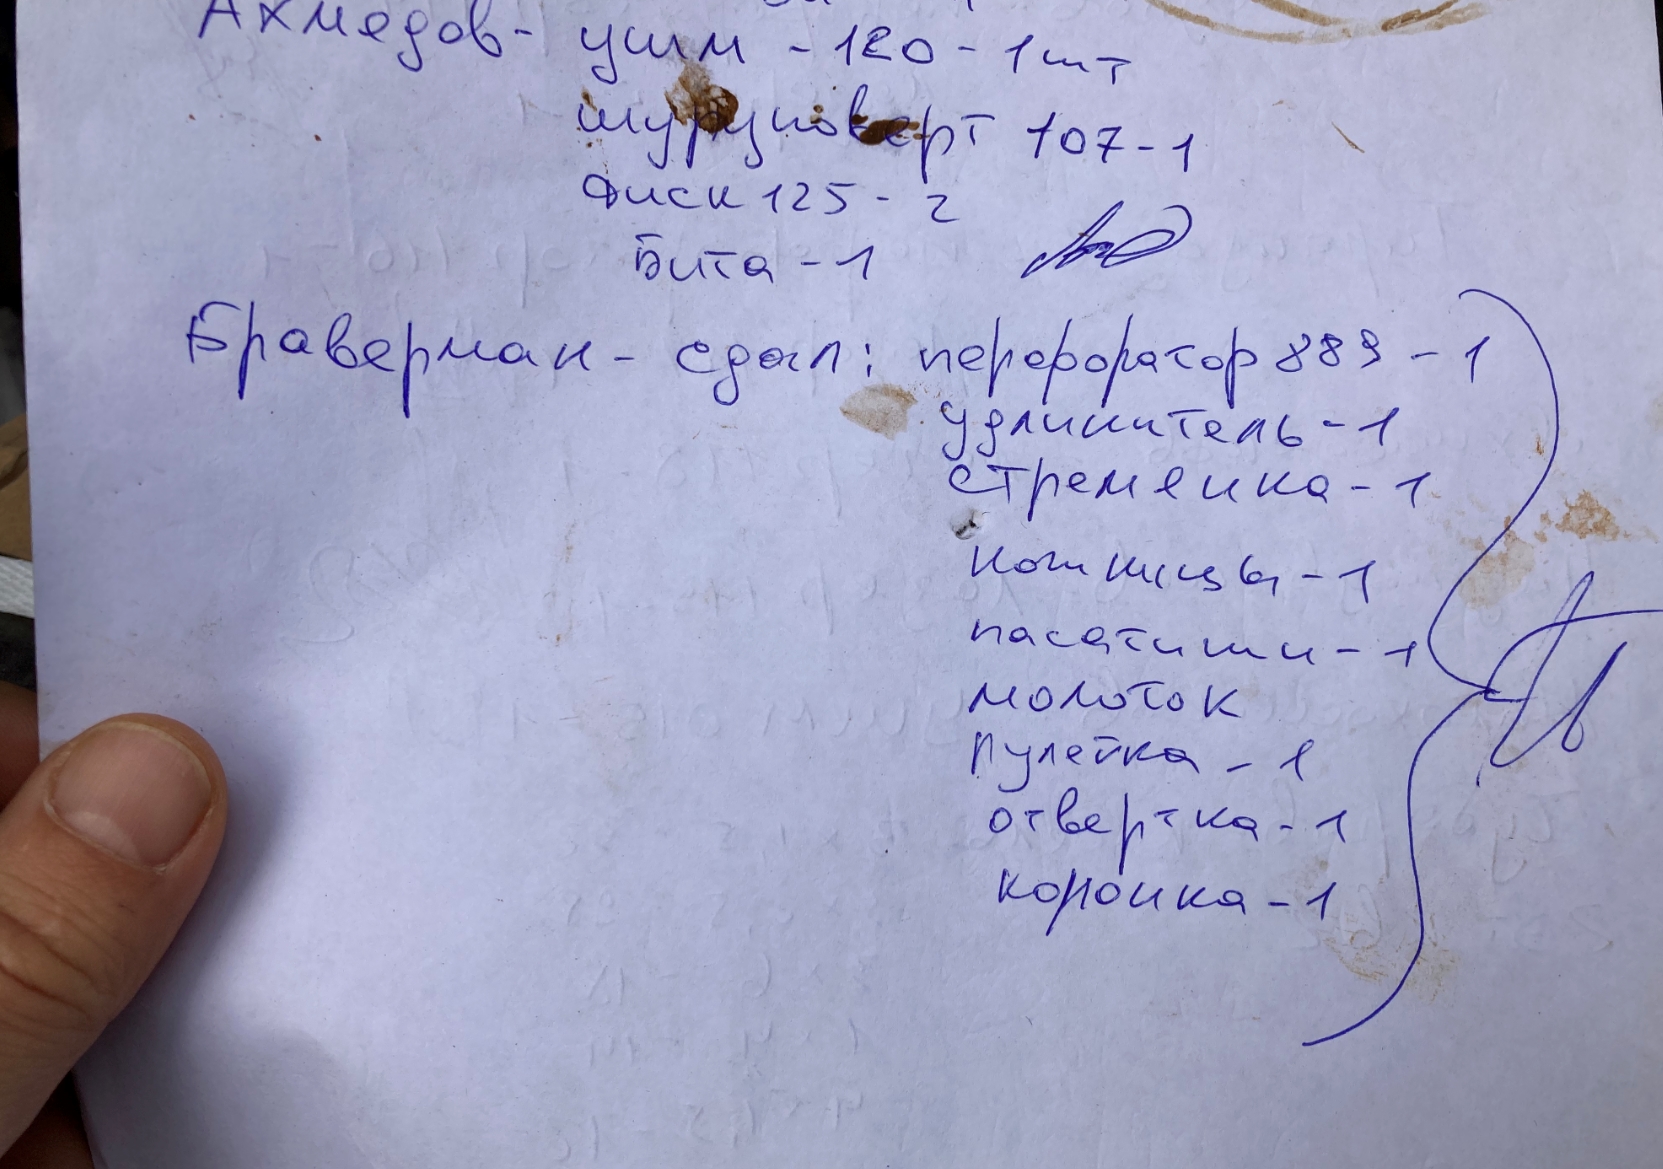 Ахмедов- ушм - 120 - 1шт
шуруповерт 107-1
Диск 125 - 2
Бита - 1
Браверман - сдал: перефоратор 889 - 1
удлинитель - 1
стремянка - 1
ножницы - 1
пасатижи - 1
молоток
Рулетка - 1
отвертка - 1
коронка - 1